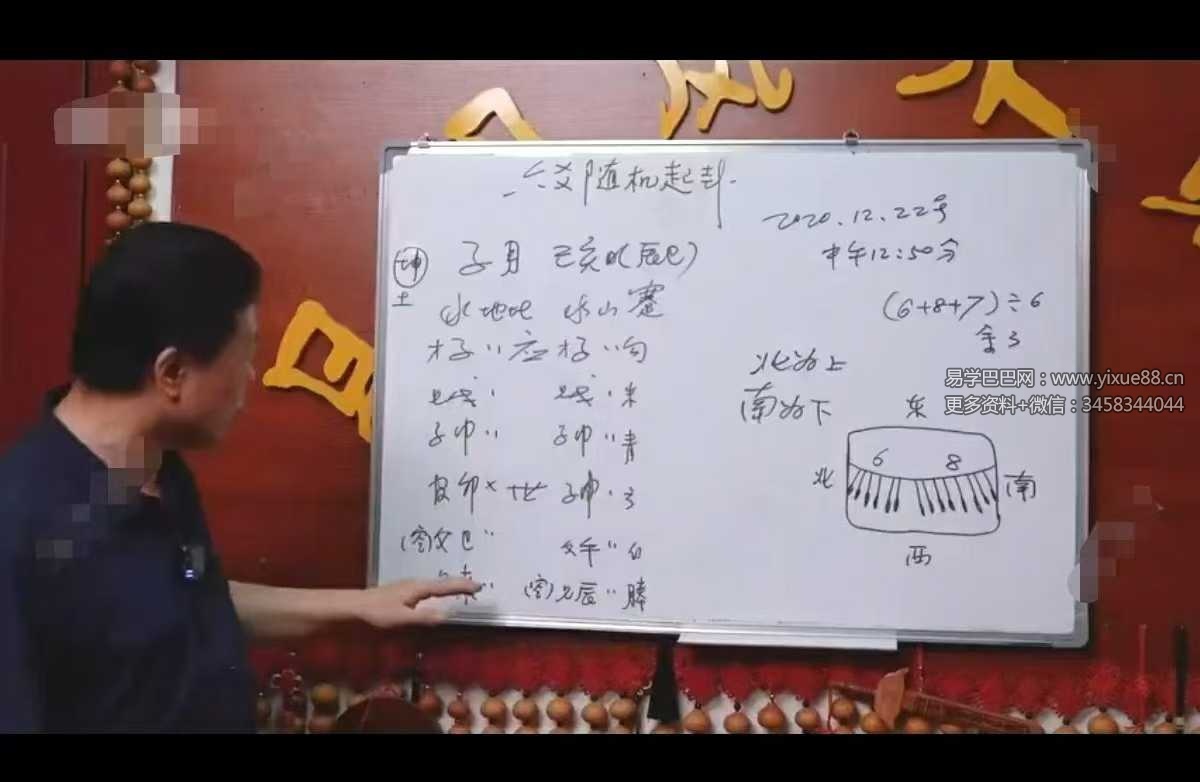 六爻随机起卦
2020.12.22号
中午12:50分
坤
土
子月 己亥日(辰巳)
水地比 水山蹇
才子〃应 才子〃勾
兄戌、 兄戌、朱
子申〃 子申〃青
官卯×世 子申、玄
(空)父巳〃 父午〃白
未〃 (空)兄辰〃螣
(6+8+7)÷6
余3
北为上
南为下
易学巴巴网：www.yixue88.cn
更多资料+微信：3458344044
东
北
6 8
南
西